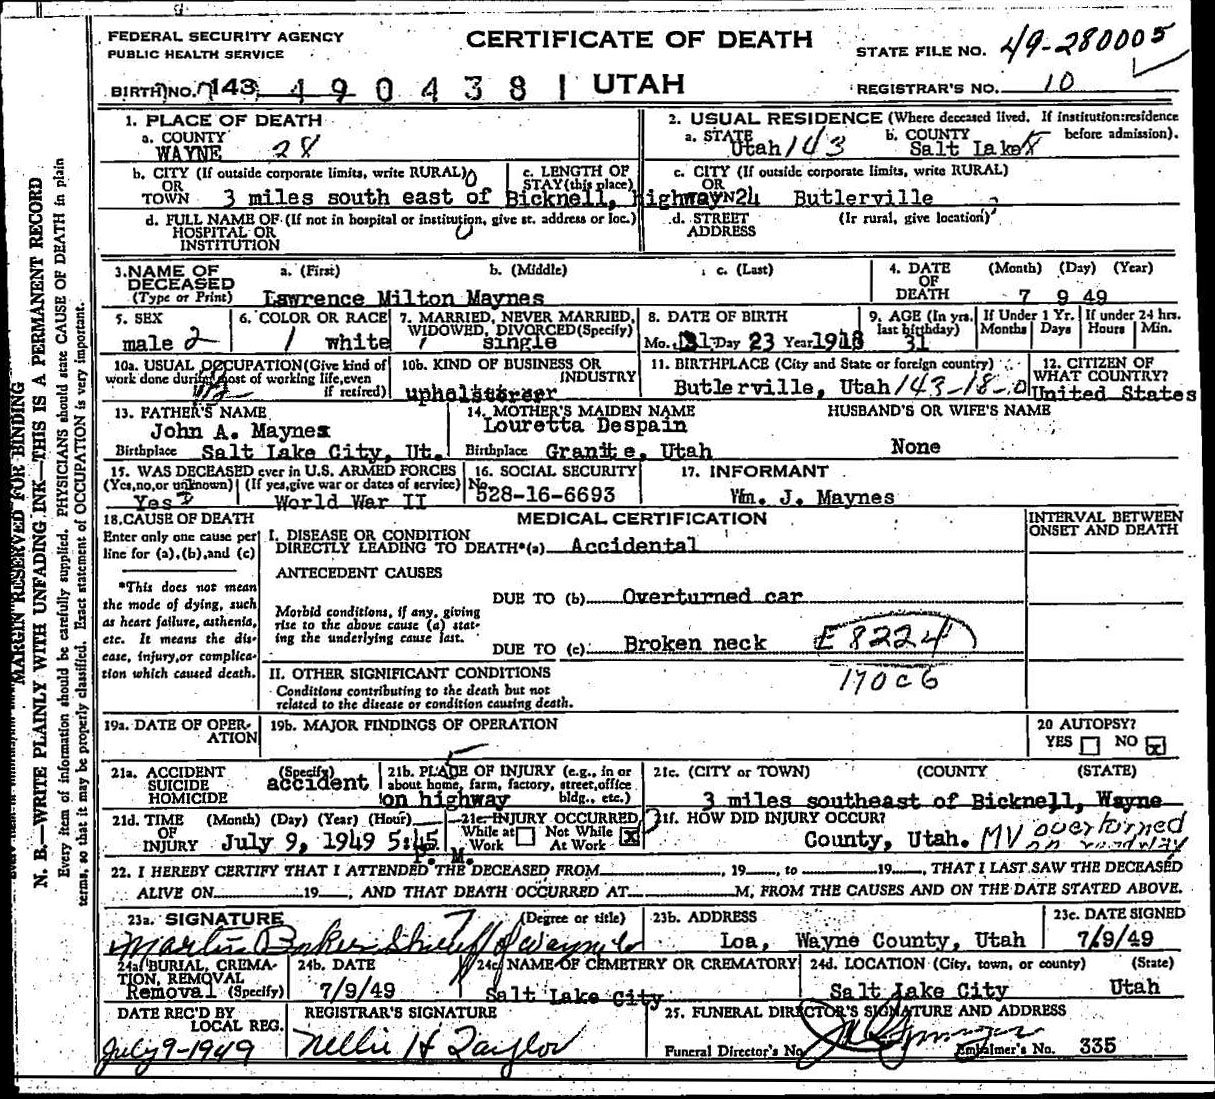 FEDERAL SECURITY AGENCY
PUBLIC HEALTH SERVICE
CERTIFICATE OF DEATH
STATE FILE NO. 49-280005
BIRTH NO. 143 490438
UTAH
REGISTRAR'S NO. 10
1. PLACE OF DEATH
a. COUNTY
WAYNE 28
2. USUAL RESIDENCE (Where deceased lived. If institution:residence before admission).
a. STATE Utah 143
b. COUNTY Salt Lake
b. CITY (If outside corporate limits, write RURAL)
OR
TOWN 3 miles south east of Bicknell, highway 24
c. LENGTH OF STAY (this place)
c. CITY (If outside corporate limits, write RURAL)
OR
TOWN Butlerville
d. FULL NAME OF (If not in hospital or institution, give st. address or loc.)
HOSPITAL OR
INSTITUTION
d. STREET (If rural, give location)
ADDRESS
3. NAME OF DECEASED
(Type or Print)
a. (First) b. (Middle) c. (Last)
Lawrence Milton Maynes
4. DATE OF DEATH
(Month) (Day) (Year)
7 9 49
5. SEX
male 2
6. COLOR OR RACE
1 white
7. MARRIED, NEVER MARRIED, WIDOWED, DIVORCED (Specify)
single
8. DATE OF BIRTH
Mo. Day 23 Year 1918
9. AGE (In yrs. last birthday)
31
If Under 1 Yr. Months Days
If under 24 hrs. Hours Min.
10a. USUAL OCCUPATION (Give kind of work done during most of working life, even if retired)
10b. KIND OF BUSINESS OR INDUSTRY
upholsterer
11. BIRTHPLACE (City and State or foreign country)
Butlerville, Utah 143-18-0
12. CITIZEN OF WHAT COUNTRY?
United States
13. FATHER'S NAME
John A. Maynes
Birthplace Salt Lake City, Ut.
14. MOTHER'S MAIDEN NAME
Louretta Despain
Birthplace Granite, Utah
HUSBAND'S OR WIFE'S NAME
None
15. WAS DECEASED ever in U.S. ARMED FORCES
(Yes, no, or unknown) (If yes, give war or dates of service)
Yes World War II
16. SOCIAL SECURITY No.
528-16-6693
17. INFORMANT
Wm. J. Maynes
18. CAUSE OF DEATH
Enter only one cause per line for (a), (b), and (c)
*This does not mean the mode of dying, such as heart failure, asthenia, etc. It means the disease, injury, or complication which caused death.
MEDICAL CERTIFICATION
INTERVAL BETWEEN ONSET AND DEATH
I. DISEASE OR CONDITION
DIRECTLY LEADING TO DEATH*(a) Accidental
ANTECEDENT CAUSES
Morbid conditions, if any, giving rise to the above cause (a) stating the underlying cause last.
DUE TO (b) Overturned car
DUE TO (c) Broken neck
E8224
170c6
II. OTHER SIGNIFICANT CONDITIONS
Conditions contributing to the death but not related to the disease or condition causing death.
19a. DATE OF OPERATION
19b. MAJOR FINDINGS OF OPERATION
20 AUTOPSY?
YES NO x
21a. ACCIDENT (Specify)
SUICIDE
HOMICIDE
accident
21b. PLACE OF INJURY (e.g., in or about home, farm, factory, street, office bldg., etc.)
on highway
21c. (CITY or TOWN) (COUNTY) (STATE)
3 miles southeast of Bicknell, Wayne
21d. TIME OF INJURY
(Month) (Day) (Year) (Hour)
July 9, 1949 5:45 P. M.
21e. INJURY OCCURRED
While at Work
Not While At Work x
21f. HOW DID INJURY OCCUR?
County, Utah. MV overturned on roadway
22. I HEREBY CERTIFY THAT I ATTENDED THE DECEASED FROM, 19, to 19, THAT I LAST SAW THE DECEASED
ALIVE ON 19, AND THAT DEATH OCCURRED AT M, FROM THE CAUSES AND ON THE DATE STATED ABOVE.
23a. SIGNATURE (Degree or title)
Martin Baker Sheriff of Wayne Co
23b. ADDRESS
Loa, Wayne County, Utah
23c. DATE SIGNED
7/9/49
24a. BURIAL, CREMATION, REMOVAL (Specify)
Removal
24b. DATE
7/9/49
24c. NAME OF CEMETERY OR CREMATORY
Salt Lake City
24d. LOCATION (City, town, or county) (State)
Salt Lake City Utah
DATE REC'D BY LOCAL REG.
July 9-1949
REGISTRAR'S SIGNATURE
Nellie H Taylor
25. FUNERAL DIRECTOR'S SIGNATURE AND ADDRESS
Funeral Director's No.
Embalmer's No. 335
MARGIN RESERVED FOR BINDING
N. B.—WRITE PLAINLY WITH UNFADING INK—THIS IS A PERMANENT RECORD
Every item of information should be carefully supplied. PHYSICIANS should state CAUSE OF DEATH in plain
terms, so that it may be properly classified. Exact statement of OCCUPATION is very important.